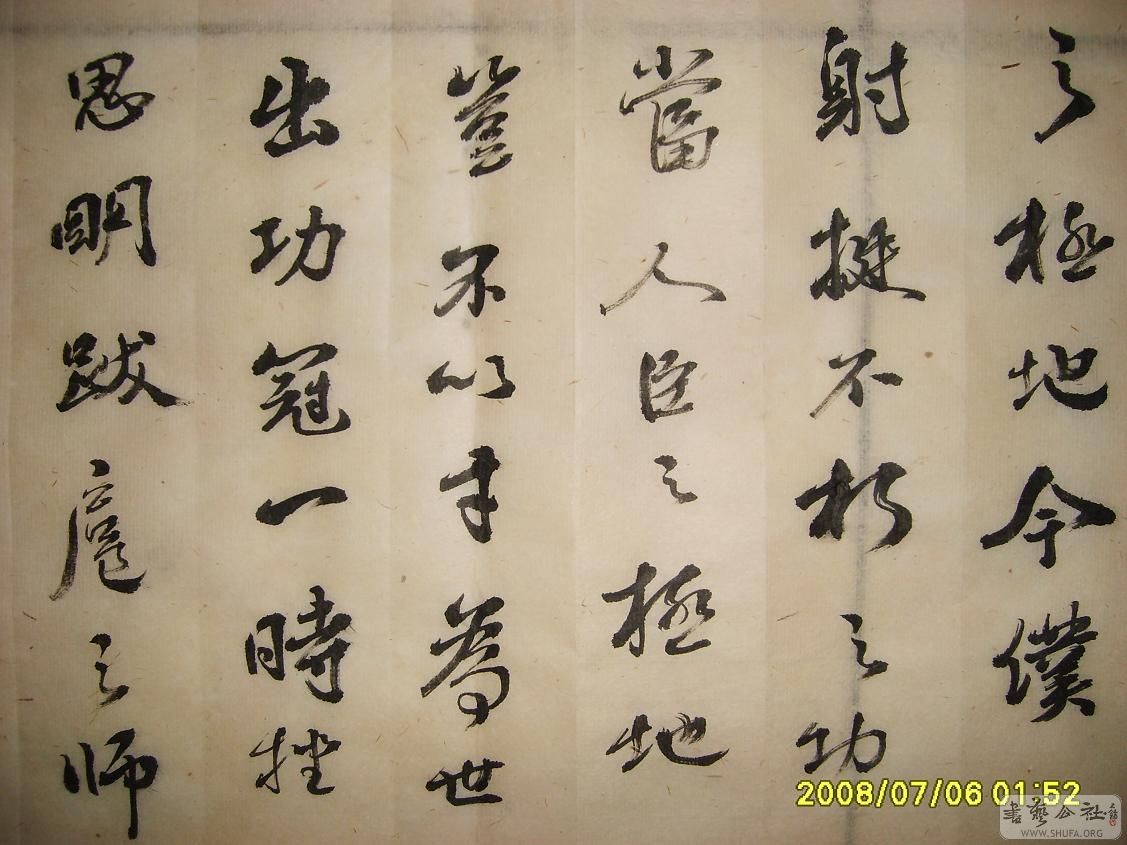 之極地今僕
射挺不朽之功
當人臣之極地
豈不以才為世
出功冠一時挫
思明跋扈之師
2008/07/06 01:52
書藝公社
WWW.SHUFA.ORG